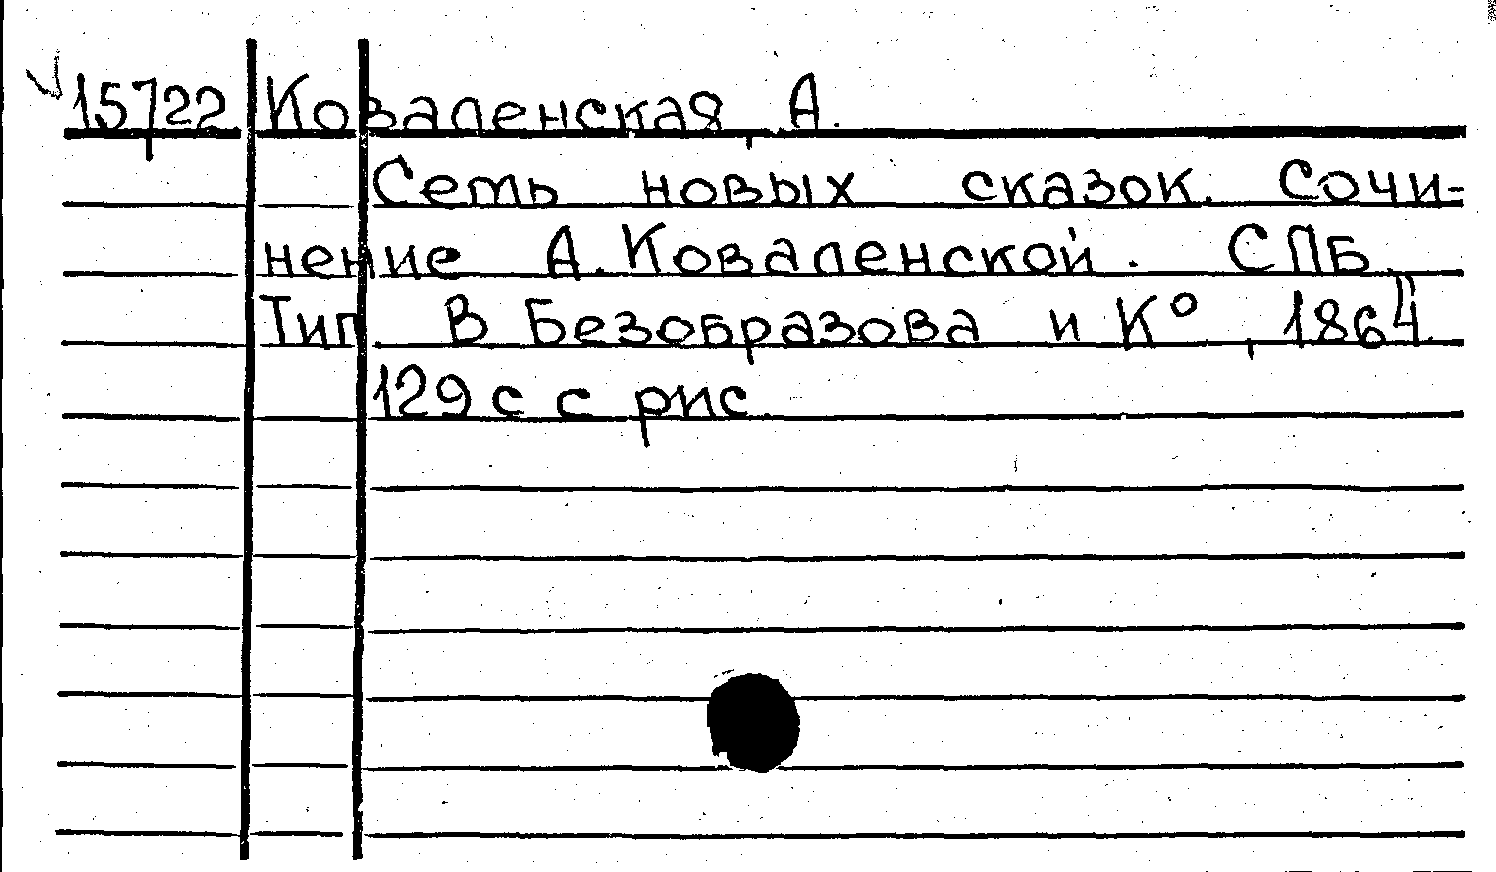 15722 Коваленская, А.
Семь новых сказок. Сочи-
нение А. Коваленской. СПБ.,
Тип В Безобразова и К°, 1864.
129 с с рис